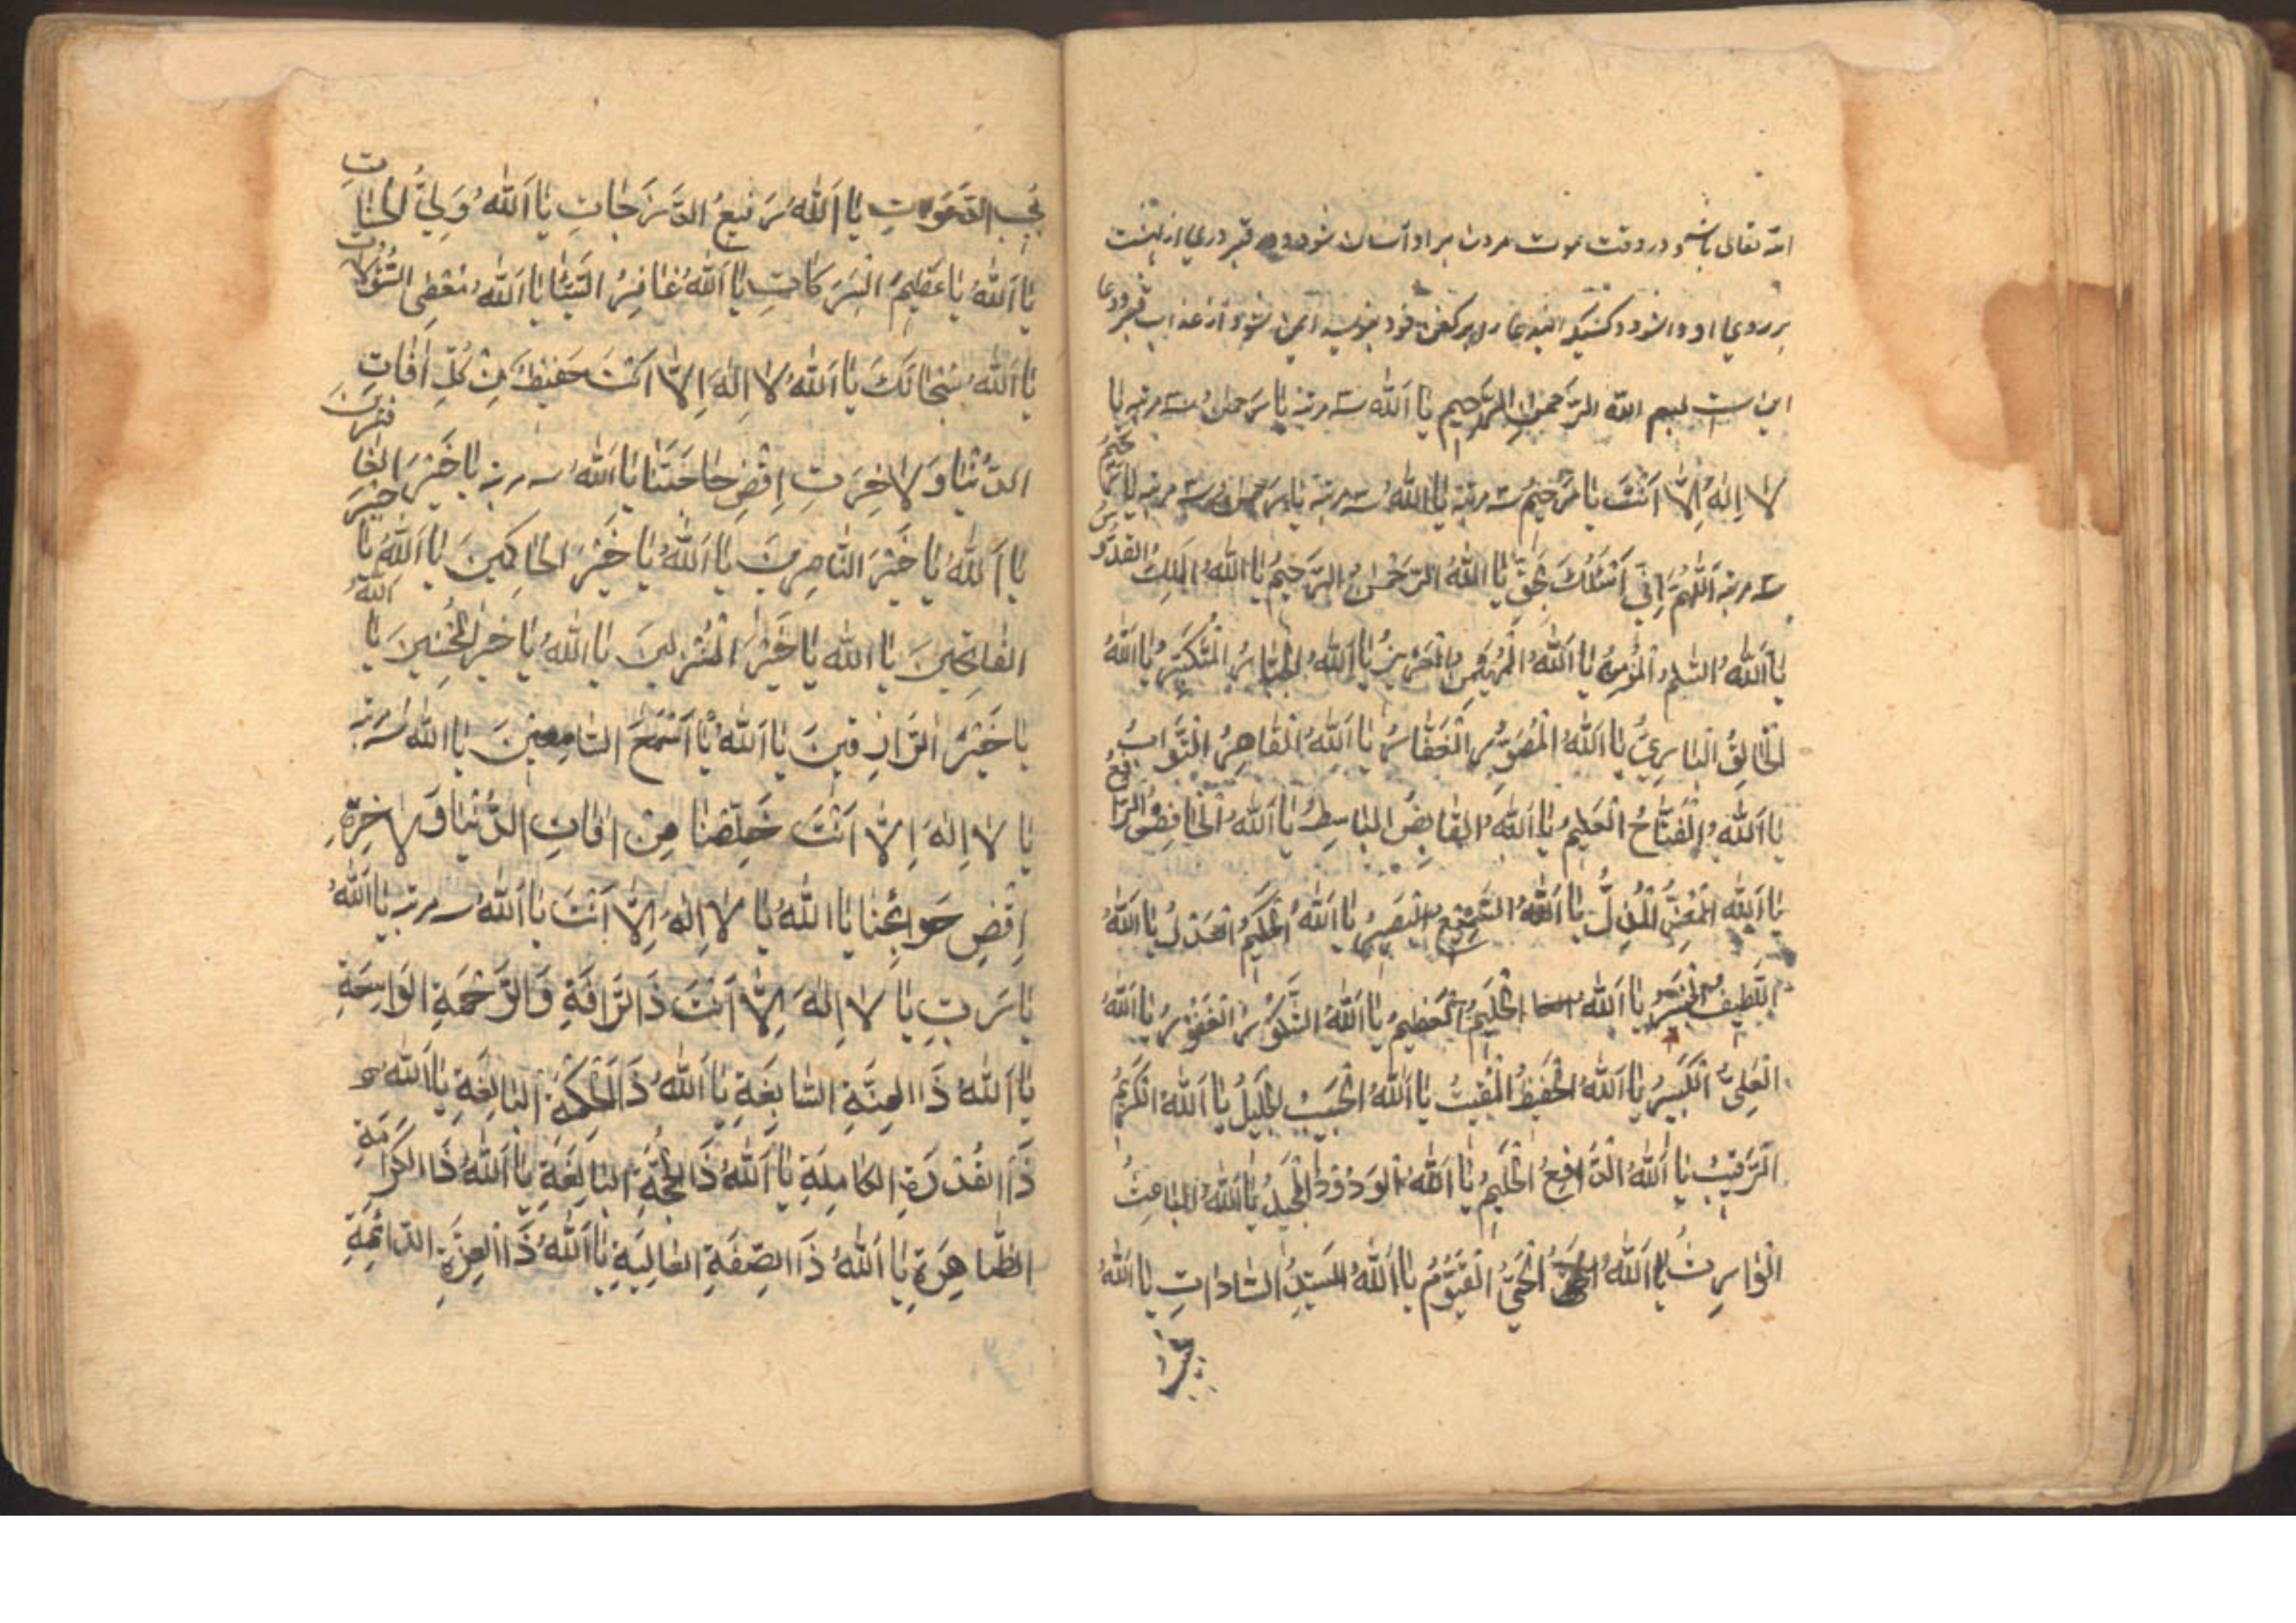 الله تعالی باشد و در وقت موت مردن بر او آسان شود و در قبر دری از بهشت
بر روی او وا شود و کسیکه این دعا را بر کفن خود بنویسد ایمن شود از عذاب قبر و دعا
این است بسم الله الرَّحمنِ الرَّحِيم يَا اَللهُ سه مرتبه يَا رَحمنُ سه مرتبه يا
لا اِلهَ اِلّا اَنْتَ يَا رَحِيمُ سه مرتبه يَا اَللهُ سه مرتبه يَا رَحمنُ سه مرتبه يَا رَحِيمُ
سه مرتبه اَللّهُمَّ اِنِّي اَسْئَلُكَ بِحَقِّ يَا اَللهُ الرَّحْمنُ الرَّحِيمُ يَا اَللهُ المَلِكُ القُدُّوسُ
يَا اَللهُ السَّلامُ المُؤْمِنُ يَا اَللهُ المُهَيْمِنُ العَزِيزُ يَا اَللهُ الجَبَّارُ المُتَكَبِّرُ يَا اَللهُ
اَلْخَالِقُ البَارِئُ يَا اَللهُ المُصَوِّرُ الْغَفَّارُ يَا اَللهُ القَاهِرُ التَّوَابُ
يَا اَللهُ الْفَتَّاحُ العَلِيمُ يَا اَللهُ القَابِضُ البَاسِطُ يَا اَللهُ الْخَافِضُ الرَّافِعُ
يَا اَللهُ المُعِزُّ المُذِلُّ يَا اَللهُ السَّمِيعُ البَصِيرُ يَا اَللهُ الحَكِيمُ العَدْلُ يَا اَللهُ
اللَّطِيفُ الخَبِيرُ يَا اَللهُ الحَلِيمُ العَظِيمُ يَا اَللهُ الشَّكُورُ الغَفُورُ يَا اَللهُ
العَلِيُّ الكَبِيرُ يَا اَللهُ الحَفِيظُ المُقِيتُ يَا اَللهُ الحَسِيبُ الجَلِيلُ يَا اَللهُ الكَرِيمُ
الرَّقِيبُ يَا اَللهُ الدَّافِعُ الحَلِيمُ يَا اَللهُ الوَدُودُ المَجِيدُ يَا اَللهُ البَاعِثُ
الوَارِثُ يَا اَللهُ الحَيُّ القَيُّومُ يَا اَللهُ السَيِّدُ السَّادَاتِ يَا اَللهُ
مُجِيب
يُجِيب الدَّعَوَاتِ يَا اَللهُ رَفِيعُ الدَّرَجَاتِ يَا اَللهُ وَلِيُّ الحَسَنَاتِ
يَا اَللهُ يَا عَظِيمُ البَرَكَاتِ يَا اَللهُ غَافِرُ السَّيِّئَاتِ يَا اَللهُ مُعْطِي السُّؤُلاتِ
يَا اَللهُ سُبْحَانَكَ يَا اَللهُ لا اِلهَ اِلّا اَنْتَ حَفِيظُ مِنْ كُلِّ افَاتِ
الدُّنْيَا وَلاخِرَتِ اِقْضِ حَاجَتَنَا يَا اَللهُ سه مرتبه يَا خَيْرَ الغَافِرِينَ
يَا اَللهُ يَا خَيْرَ النَّاصِرِينَ يَا اَللهُ يَا خَيْرَ الحَاكِمِينَ يَا اَللهُ يَا خَيْرَ
الفَاتِحِينَ يَا اَللهُ يَا خَيْرَ المُنْزِلِينَ يَا اَللهُ يَا خَيْرَ المُحْسِنِينَ يَا اَللهُ
يَا خَيْرَ الرَّازِقِينَ يَا اَللهُ يَا اَسْمَعَ السَّامِعِينَ يَا اَللهُ سه مرتبه
يَا لا اِلهَ اِلّا اَنْتَ خَلِّصْنَا مِنْ افَاتِ الدُّنْيَا وَلاخِرَةِ
اِقْضِ حَوَائِجَنَا يَا اَللهُ يَا لا اِلهَ اِلّا اَنْتَ يَا اَللهُ سه مرتبه يَا اَللهُ
يَا رَبِّ يَا لا اِلهَ اِلّا اَنْتَ ذَا الرَّافَةِ وَالرَّحْمَةِ الوَاسِعَةِ
يَا اَللهُ ذَا المِنَّةِ السَّابِغَةِ يَا اَللهُ ذَا الحِكْمَةِ البَالِغَةِ يَا اَللهُ
ذَا القُدْرَةِ الكَامِلَةِ يَا اَللهُ ذَا الحُجَّةِ البَالِغَةِ يَا اَللهُ ذَا الكَرَامَةِ
الظَّاهِرَةِ يَا اَللهُ ذَا الصِّفَةِ العَالِيَةِ يَا اَللهُ ذَا العِزَّةِ الدَّائِمَةِ